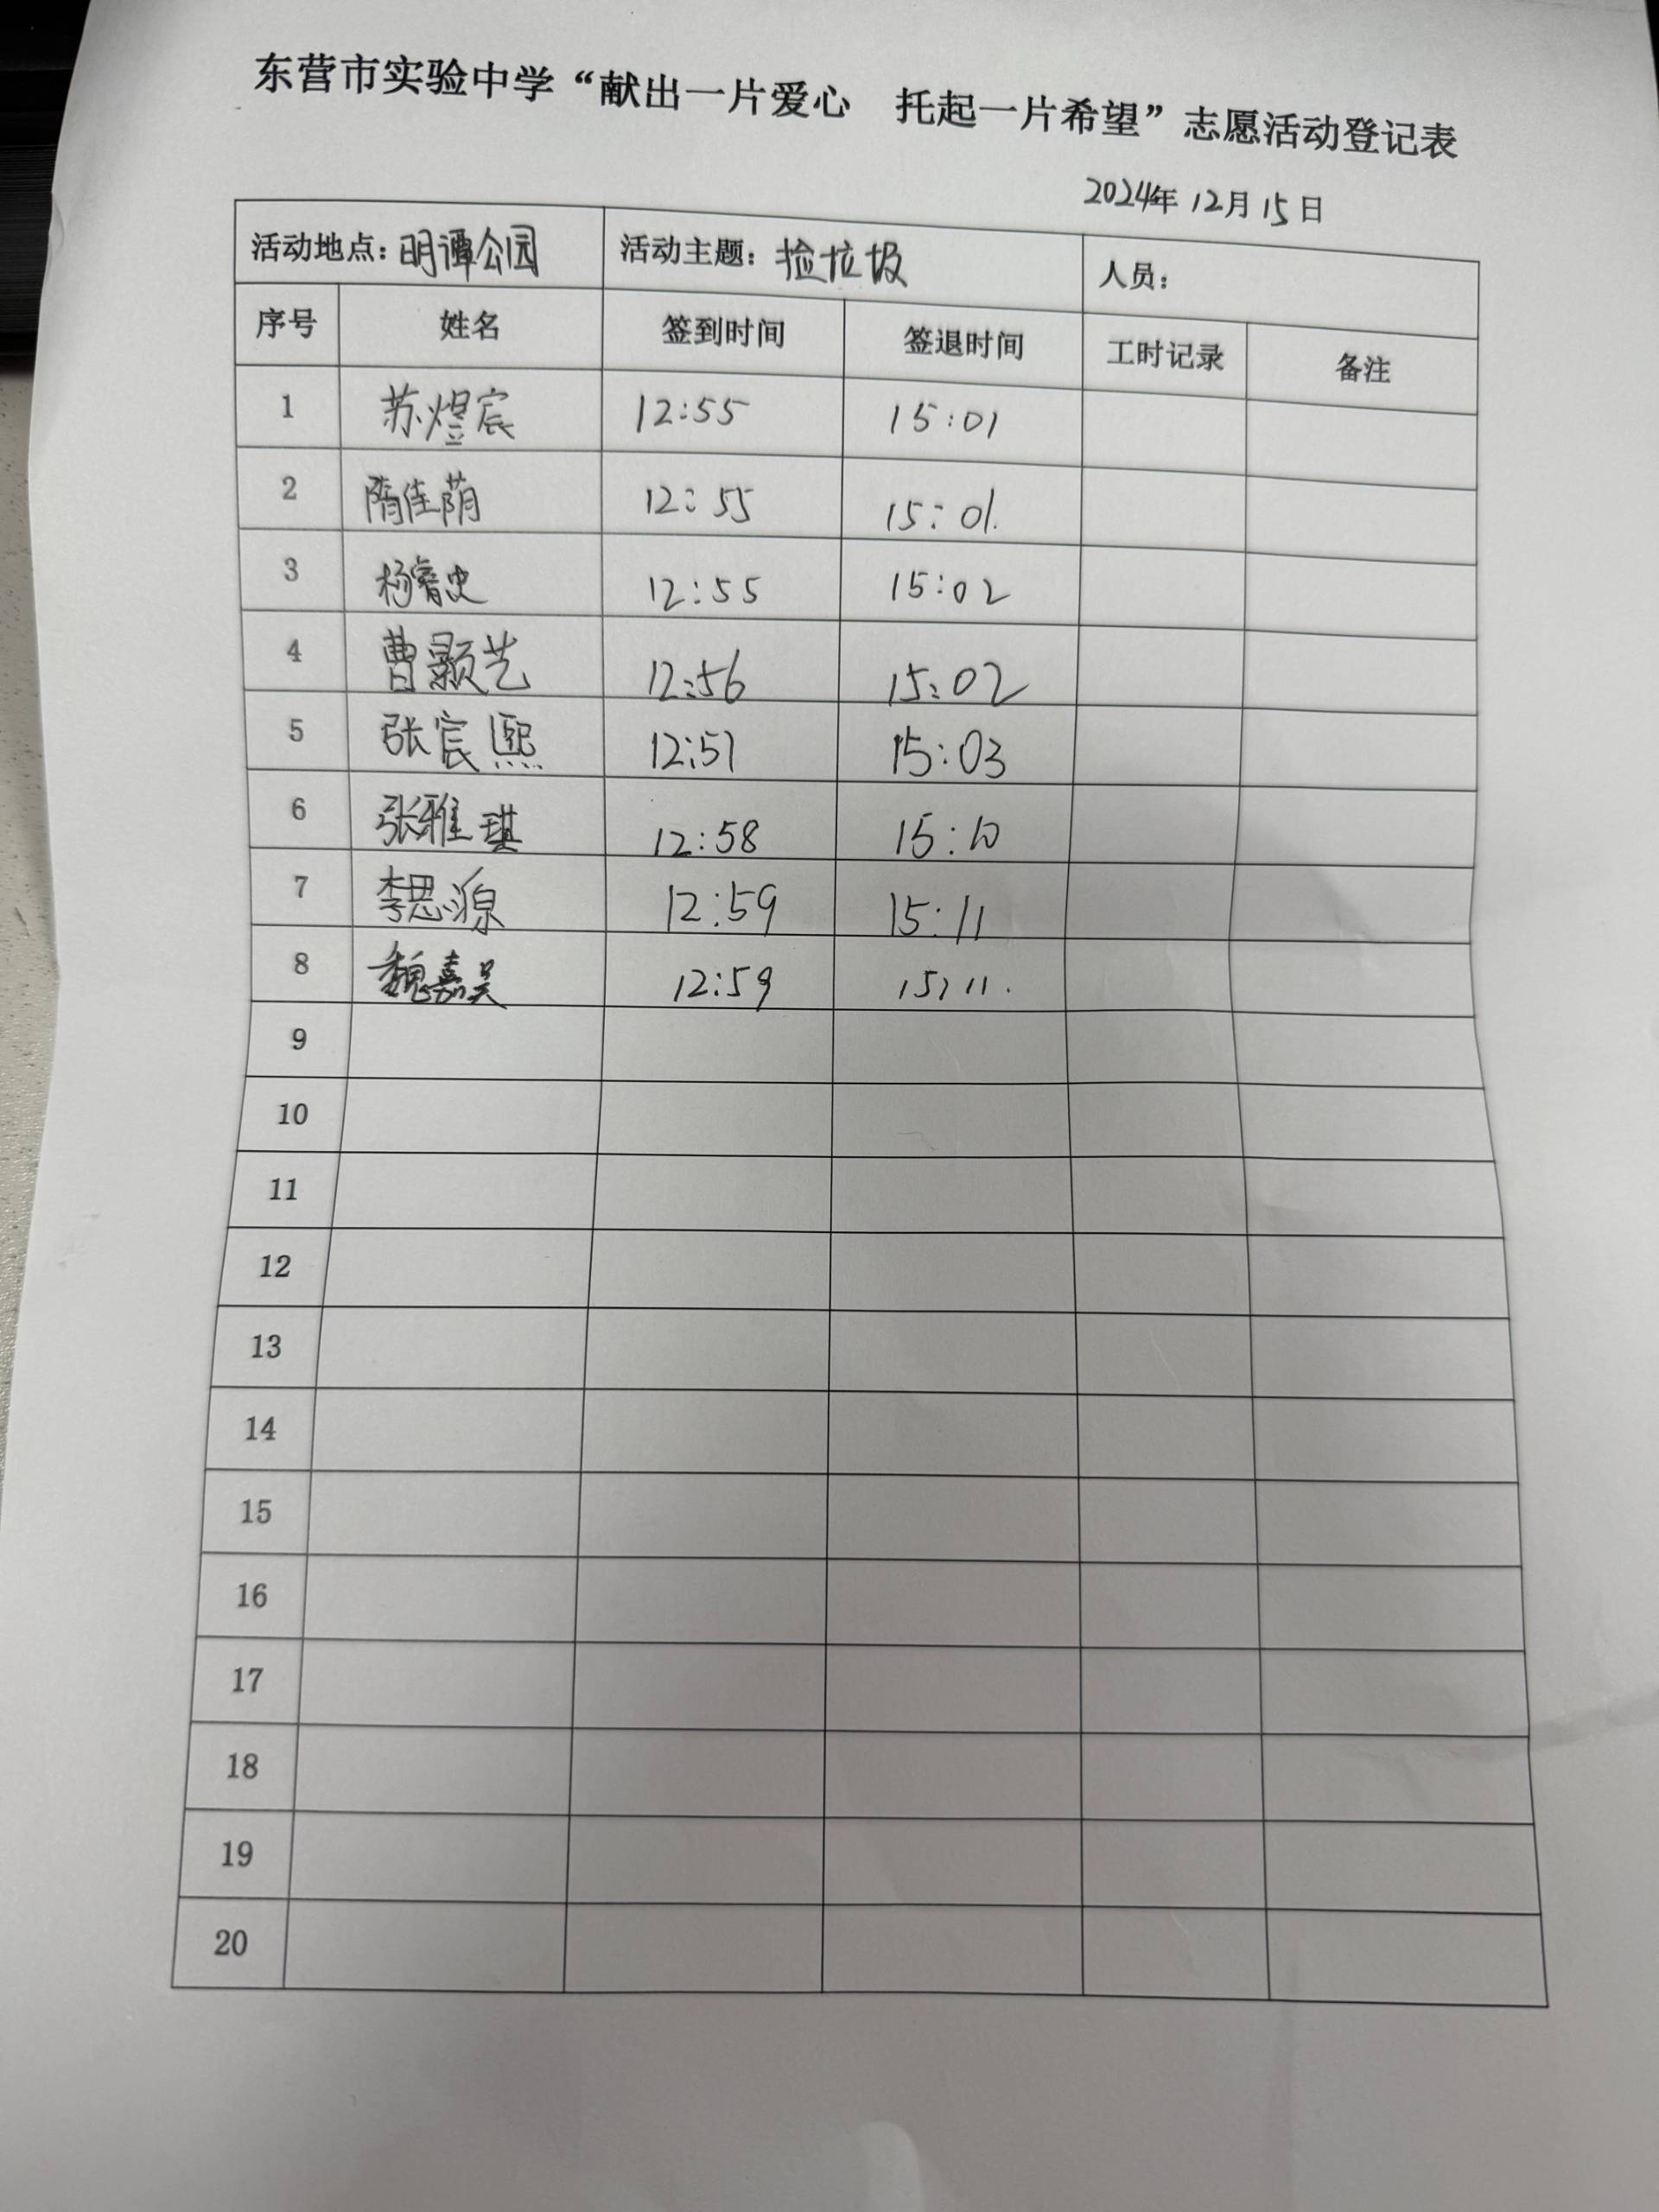 东营市实验中学“献出一片爱心 托起一片希望”志愿活动登记表
2024年12月15日
活动地点：明潭公园 活动主题：捡垃圾 人员：
序号 姓名 签到时间 签退时间 工时记录 备注
1 苏煜宸 12:55 15:01
2 隋佳荫 12:55 15:01.
3 杨睿史 12:55 15:02
4 曹颢艺 12:56 15:02
5 张宸熙 12:57 15:03
6 张雅琪 12:58 15:10
7 李思源 12:59 15:11
8 魏嘉昊 12:59 15:11.
9
10
11
12
13
14
15
16
17
18
19
20